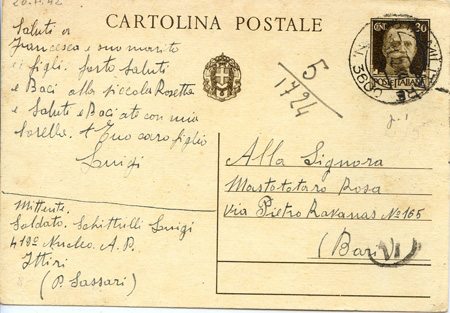 20.11.42
CARTOLINA POSTALE
CENT 30
POSTE ITALIANE
3600
5
1724
Saluti a
Francesca e suo marito
e figli. forto Saluti
e Baci alla piccola Rosetta
e Saluti e Baci a te con mia
Sorella. tuo caro figlio
Luigi
Mittente.
Soldato. Schittulli Luigi
419º Nucleo. A. P.
Ittiri
(P. Sassari)
Alla Signora
Mastototaro Rosa
Via Pietro Ravanas Nº 165
(Bari)